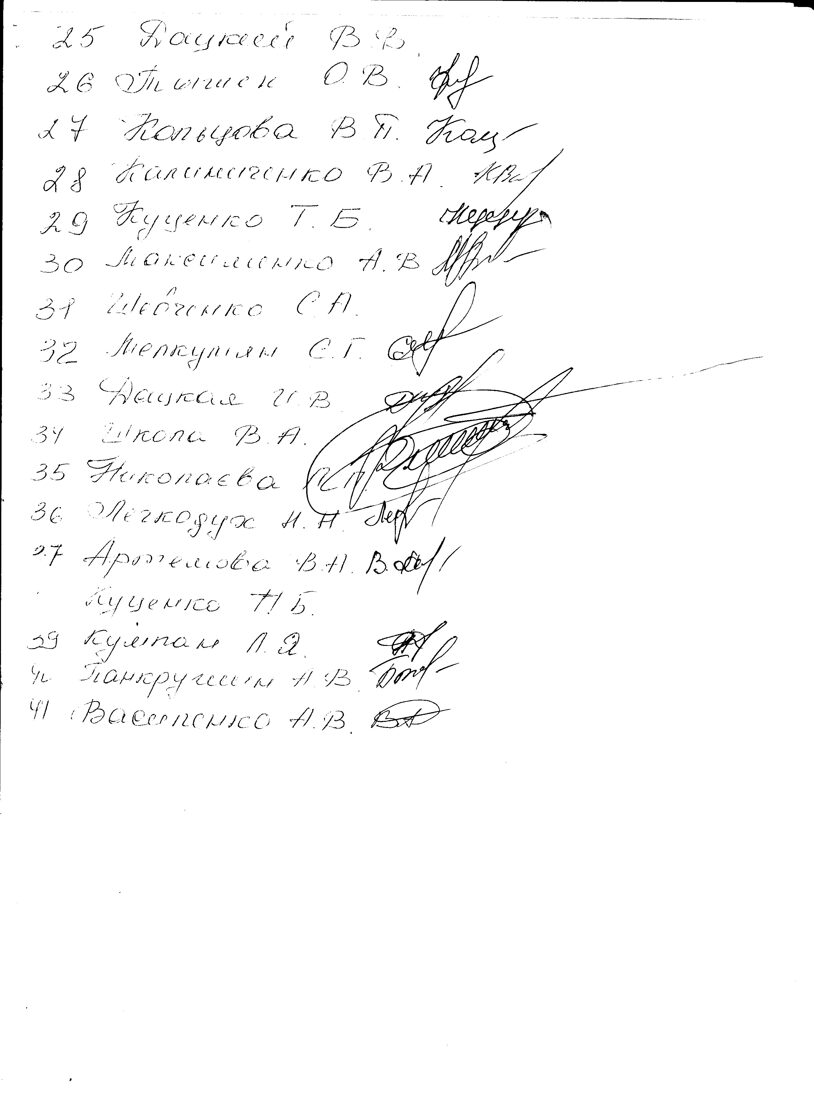 25 Дацкий В.В.
26 О.В.
27 Кольцова В.П. Кольц
28 Калиниченко В.А. КВ
29 Куценко Т.Б.
30 Максименко А.В.
31 Шевченко С.А.
32 Мелкумян С.Г.
33 Дацкая И.В.
34 Школа В.А.
35 Николаева
36 Легкодух Н.Н.
37 Артемова В.А.
Куценко Н.Б.
39 Култан Л.Я.
40 Панкрушин А.В.
41 Василенко А.В. ВА